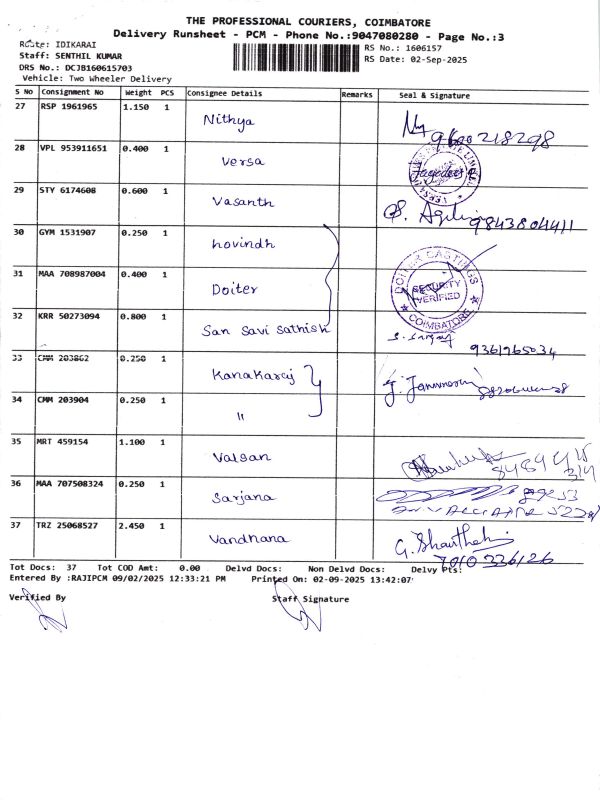 THE PROFESSIONAL COURIERS, COIMBATORE
Delivery Runsheet - PCM - Phone No.:9047080280 - Page No.:3
Route: IDIKARAI
RS No.: 1606157
Staff: SENTHIL KUMAR
RS Date: 02-Sep-2025
DRS No.: DCJB160615703
Vehicle: Two Wheeler Delivery
S No Consignment No Weight PCS Consignee Details Remarks Seal & Signature
27 RSP 1961965 1.150 1 Nithya 9600218298
28 VPL 953911651 0.400 1 Versa
29 STY 6174608 0.600 1 Vasanth 9843804411
30 GYM 1531907 0.250 1 hovindh
31 MAA 708987004 0.400 1 Doiter DOITER CASTINGS SECURITY VERIFIED COIMBATORE
32 KRR 50273094 0.800 1 San Savi Sathish 9361965034
33 CMM 203862 0.250 1 Kanakaraj
34 CMM 203904 0.250 1 "
35 MRT 459154 1.100 1 Valsan
36 MAA 707508324 0.250 1 Sarjana
37 TRZ 25068527 2.450 1 Vandhana 7010336126
Tot Docs: 37 Tot COD Amt: 0.00 Delvd Docs: Non Delvd Docs: Delvy Pts:
Entered By :RAJIPCM 09/02/2025 12:33:21 PM Printed On: 02-09-2025 13:42:07
Verified By Staff Signature